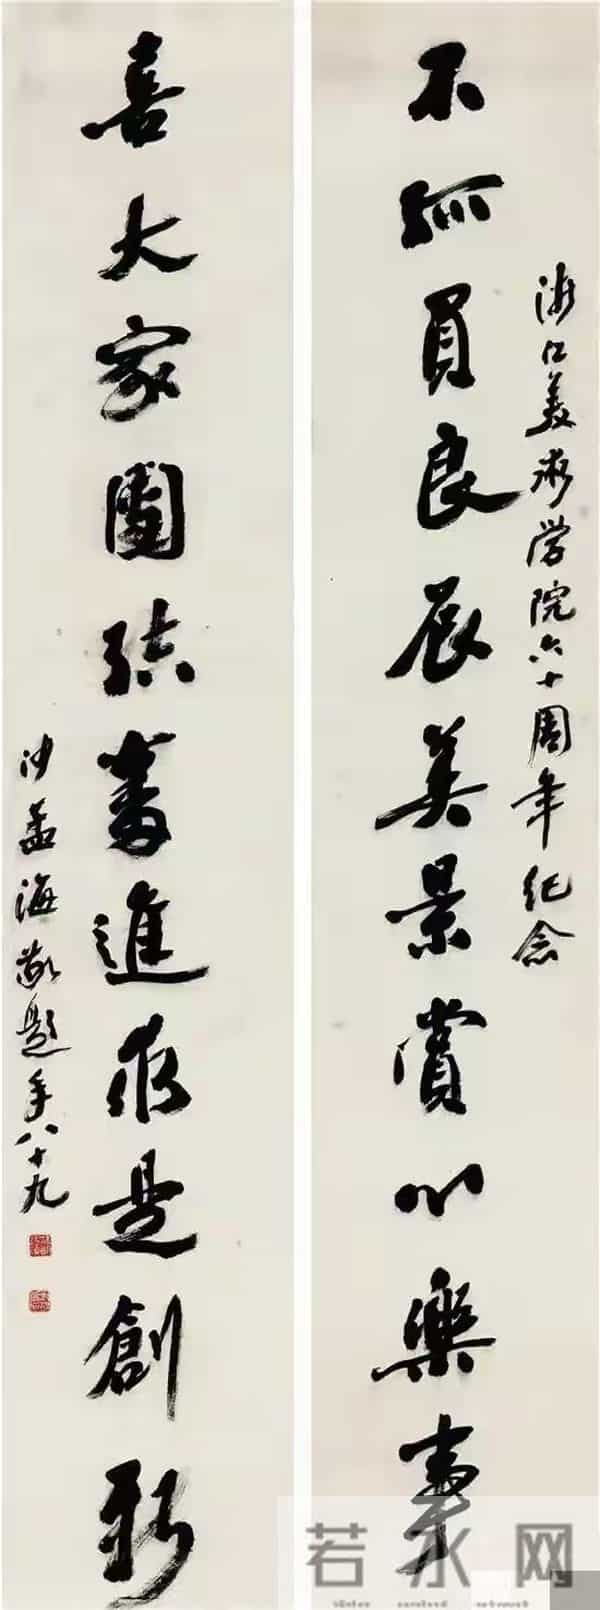 浙江美術学院六十周年纪念
不孤負良辰美景賞心樂事
喜大家團结奮進求是創新
沙孟海敬題年八十九
若水网